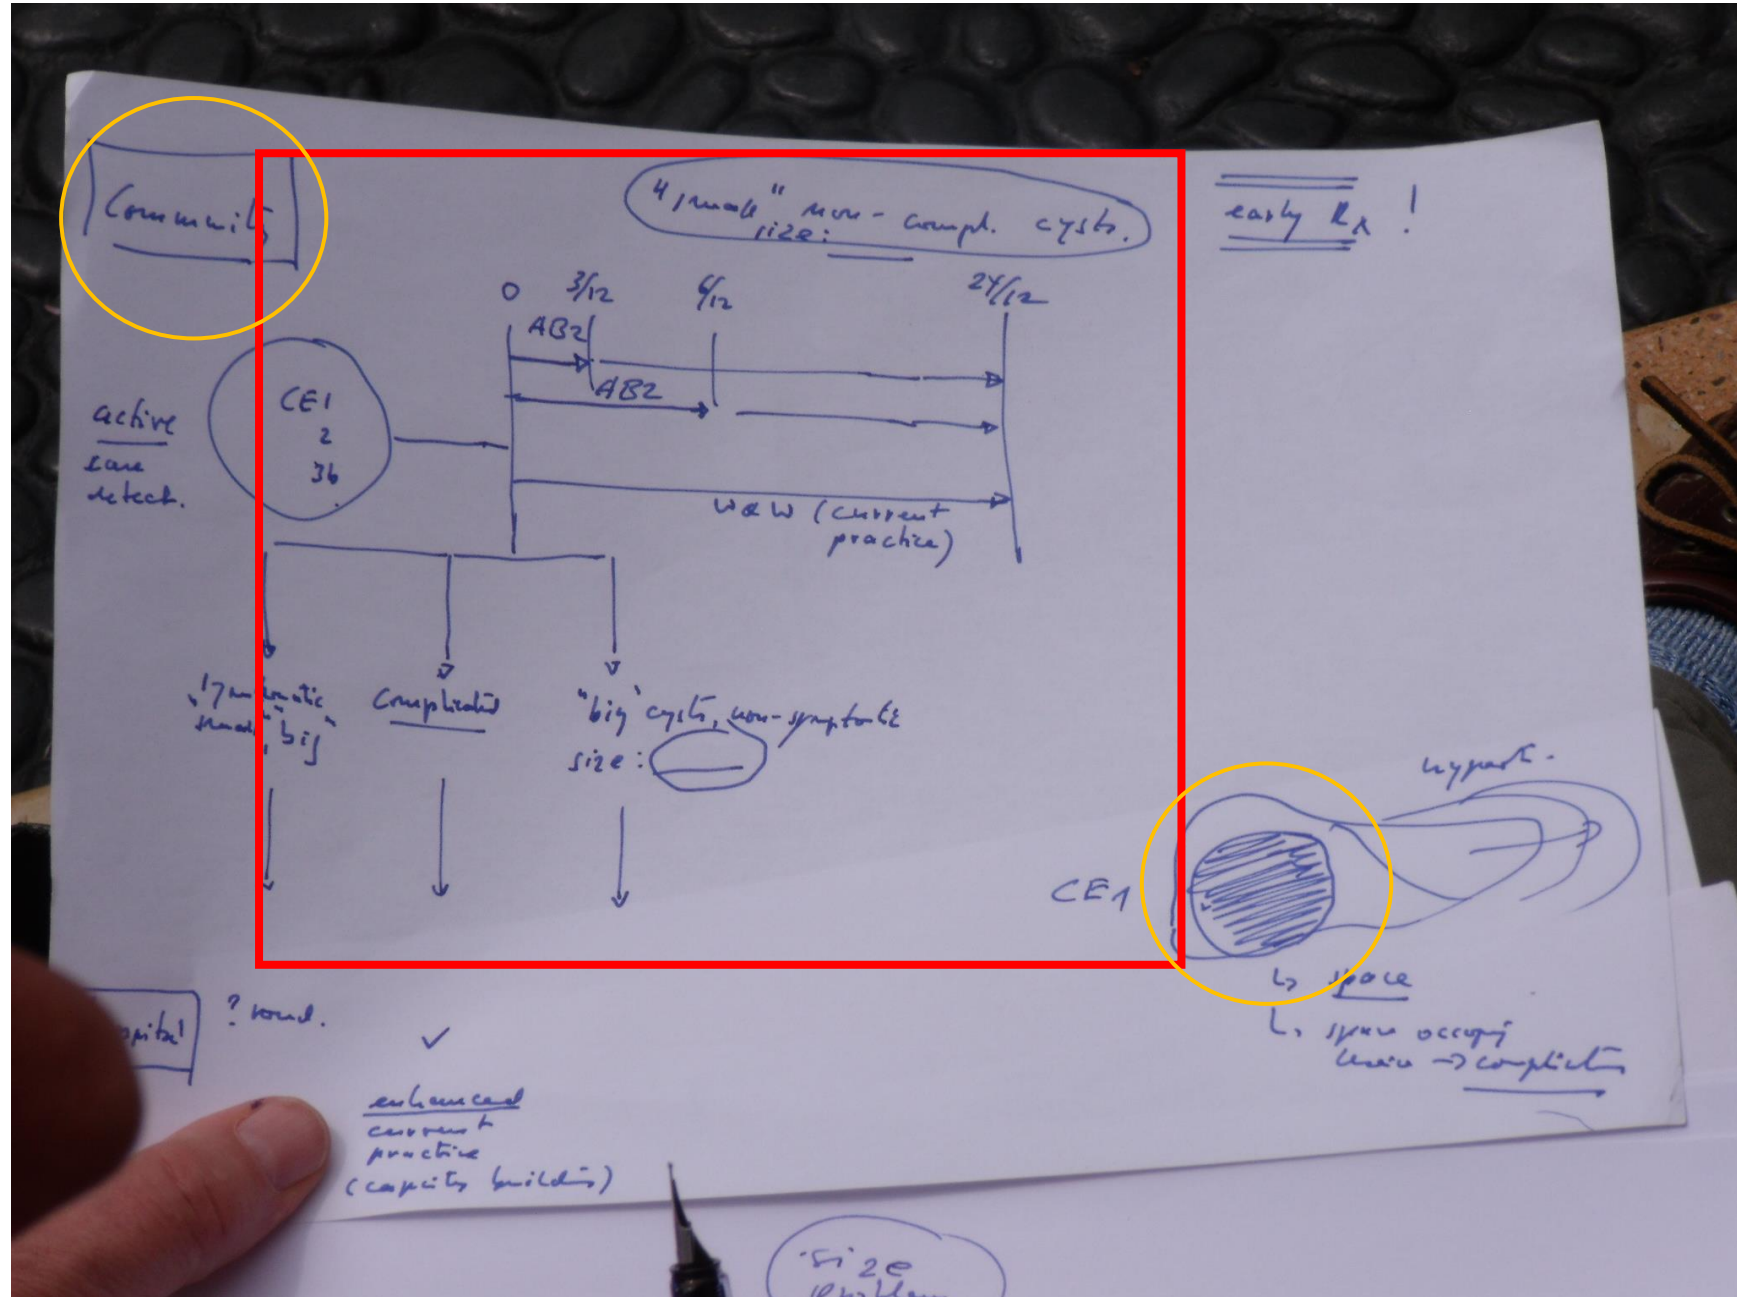 Community
"small" non-compl. cysts.
size:
early Rx !
0 3/12 6/12 24/12
ABZ
ABZ
CE1
2
3b
active
case
detect.
W&W (current
practice)
"small" "big"
Complicated
"big" cysts, non-symptomatic
size:
CE1
space
space occupying
→ complication
? round.
✓
enhanced
current
practice
(capacity building)
size
problem